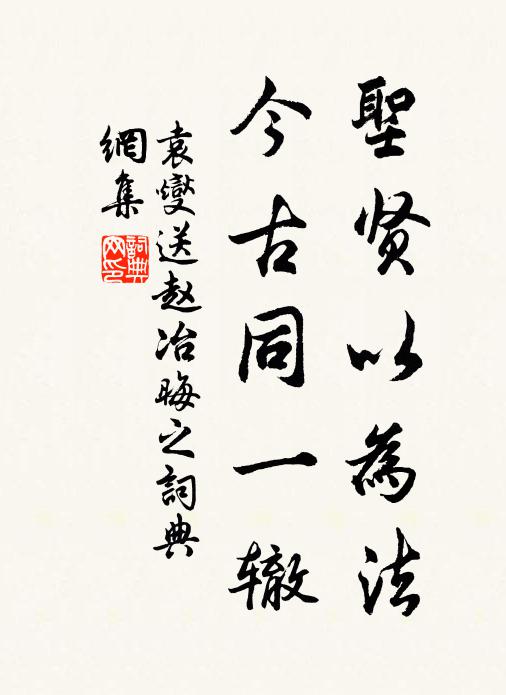 聖贤以為法
今古同一辙
袁燮送赵冶晦之詞典
網集
詞典网印